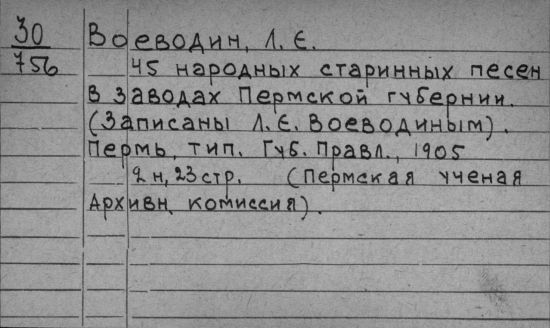 30
756
Воеводин, Л. Е.
45 народных старинных песен
в заводах Пермской губернии.
(Записаны Л. Е. Воеводиным).
Пермь, тип. Губ. Правл., 1905
2 н, 23 стр. (Пермская ученая
Архивн. комиссия).